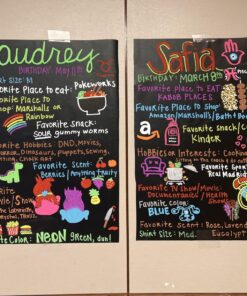 audrey
BIRTHDAY: MAY 11th
Shirt SIZE: M
Favorite Place to eat:
Pokeworks
Favorite Place to
Shop: Marshalls or
Rainbow
Favorite Snack:
SOUR gummy worms
Favorite Hobbies: DND, MOVIES,
Dinosaurs, Puppets, Sewing,
Favorite Scent:
Berries / Anything fruity
Favorite
Color: NEON Green, duh!
Safia
BIRTHDAY: MARCH 8th
Favorite Place to EAT
KABOB PLACES
Favorite Place to Shop:
Amazon/Marshalls/Bath + Body
Favorite Snack/
Kinder
Hobbies or Interests: Cooking
Favorite
Real Madrid
Favorite TV Show/Movie:
Documentaries / Health
Shows
Favorite color:
BLUE
Favorite Scent: Rose, Lavender
Eucalyptus
Shirt Size: Med.